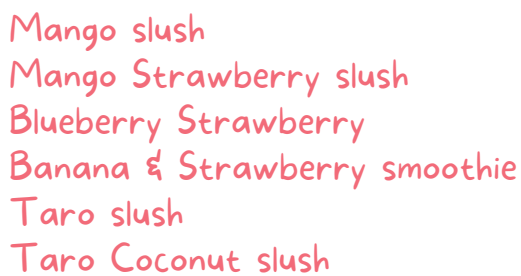 Mango slush
Mango Strawberry slush
Blueberry Strawberry
Banana & Strawberry smoothie
Taro slush
Taro Coconut slush